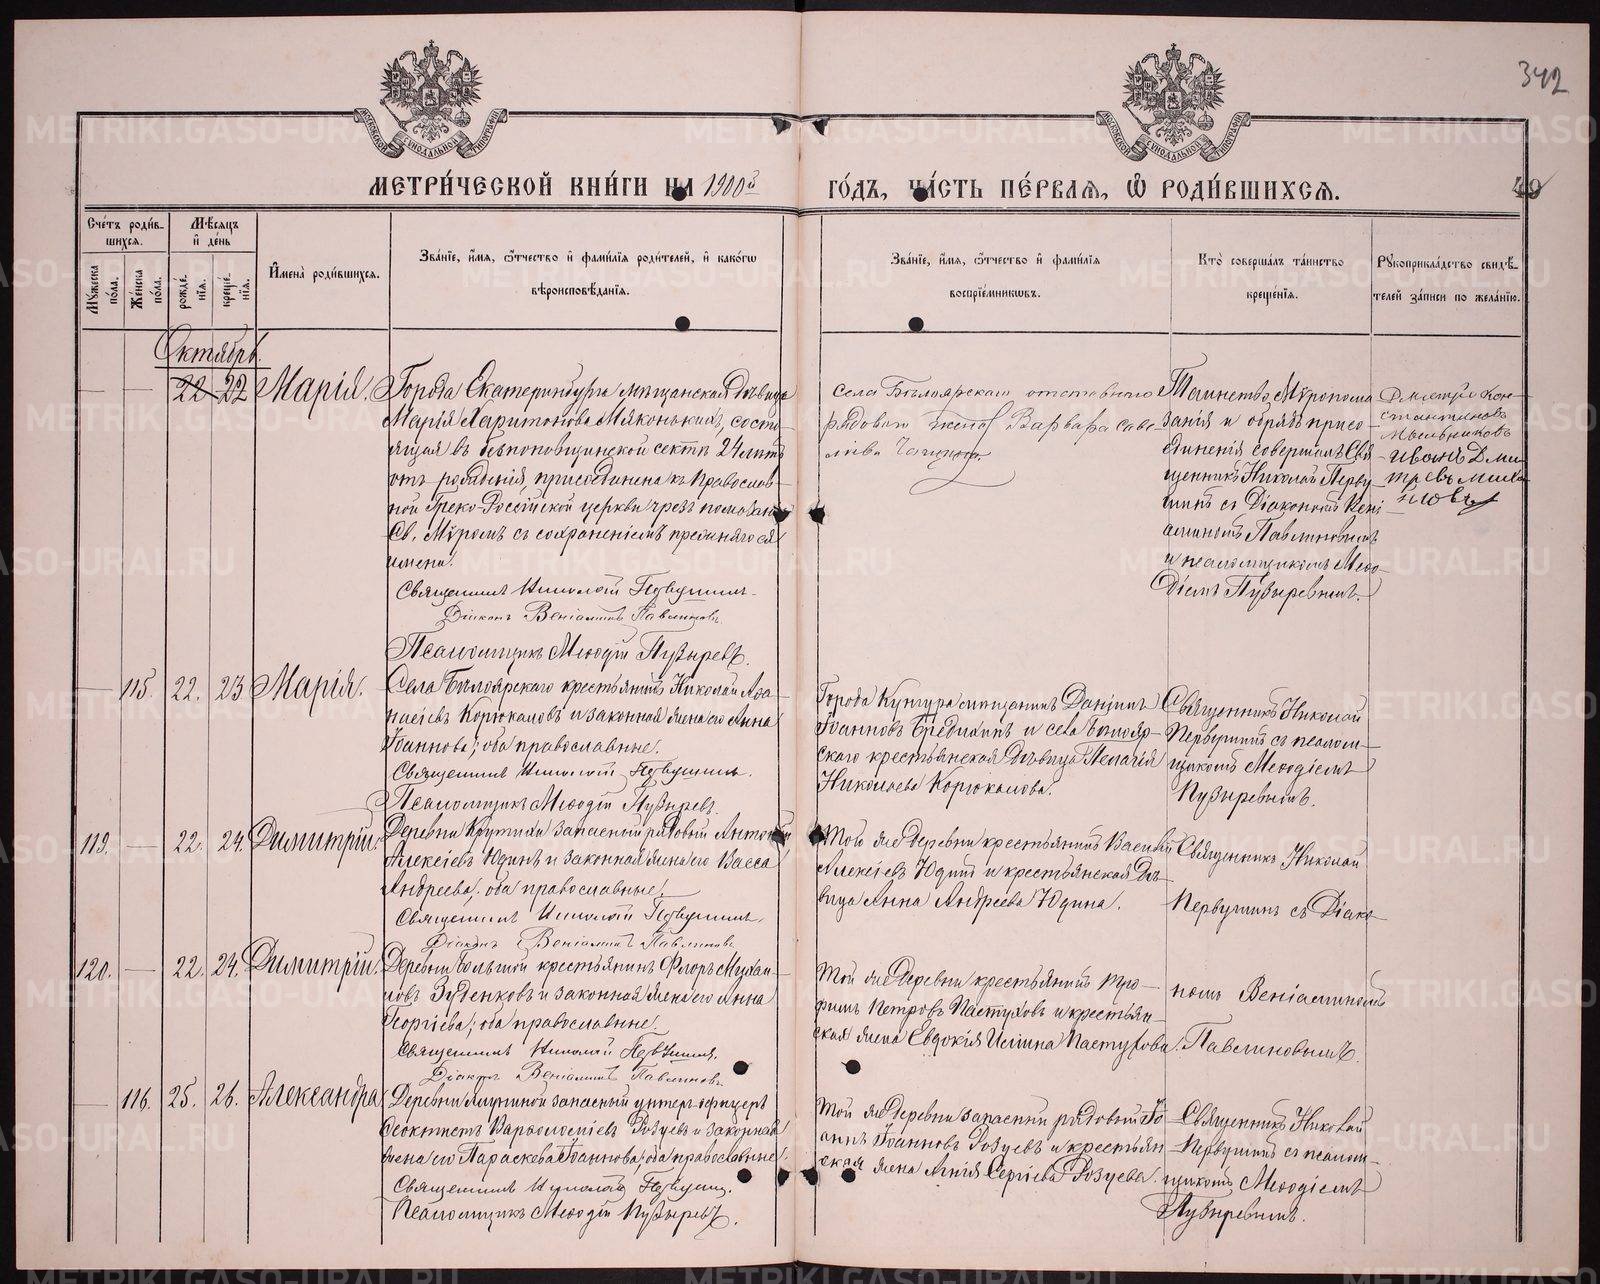 342
МЕТРИ́ЧЕСКОЙ КНИ́ГИ НА 1900й ГО́ДЪ, ЧА́СТЬ ПЕ́РВАЯ, Ѽ РОДИ́ВШИХСЯ.
49
Сче́тъ роди́в-
шихся.
Му́жеска по́ла.
Же́нска по́ла.
Мѣ́сяцъ и де́нь
рожде́нія.
креще́нія.
Имена̀ роди́вшихся.
Зва́ніе, и́мя, ѻ́тчество и фами́лія роди́телей, и како́гѡ
вѣроисповѣ́данія.
Зва́ніе, и́мя, ѻ́тчество и фами́лія
воспріе́мникѡвъ.
Кто̀ соверша́лъ та́инство
креще́нія.
Рукоприкла́дство свидѣ́-
телей за́писи по жела́нію.
Октябрь.
— — 22 22 Марія.
Города Екатеринбурга мѣщанская дѣвица
Марія Харитонова Мяконькихъ, состо-
ящая въ безпоповщинской сектѣ 24 лѣтъ
отъ рожденія, присоединена къ православ-
ной Греко-Россійской церкви чрезъ помазаніе
Св. Мѵромъ съ сохраненіемъ прежняго ея
имени.
Священникъ Николай Первушинъ.
Діаконъ Веніаминъ Павлиновъ.
Псаломщикъ Меѳодій Пузыревъ.
села Бѣлоярскаго отставного
рядового жена Варвара
Таинство Мѵропома-
занія и обрядъ присо-
единенія совершалъ Свя-
щенникъ Николай Перву-
шинъ съ Діакономъ Вені-
аминомъ Павлиновымъ
и псаломщикомъ Меѳо-
діемъ Пузыревымъ.
Дмитрій Кон-
стантиновъ
Мыльниковъ
Иванъ Дми-
тревъ Миха-
иловъ
— 115. 22. 23 Марія.
Села Бѣлоярскаго крестьянинъ Николай Аѳа-
насіевъ Корюкаловъ и законная жена его Анна
Іоаннова; оба православные.
Священникъ Николай Первушинъ.
Псаломщикъ Меѳодій Пузыревъ.
Города Кунгура мѣщанинъ Даніилъ
Іоанновъ Бредихинъ и села Бѣлояр-
скаго крестьянская дѣвица Пелагія
Николаева Корюкалова.
Священникъ Николай
Первушинъ съ псалом-
щикомъ Меѳодіемъ
Пузыревымъ.
119. — 22. 24. Димитрій.
Деревни Крутихи запасный рядовый Антоній
Алексіевъ Юдинъ и законная жена его Васса
Андреева; оба православные.
Священникъ Николай Первушинъ.
Діаконъ Веніаминъ Павлиновъ.
Той же деревни крестьянинъ Василій
Алексіевъ Юдинъ и крестьянская дѣ-
вица Анна Андреева Юдина.
Священникъ Николай
Первушинъ съ Діако-
120. — 22. 24. Димитрій.
Деревни Большой крестьянинъ Флоръ Михаи-
ловъ Зубенковъ и законная жена его Анна
Георгіева; оба православные.
Священникъ Николай Первушинъ.
Діаконъ Веніаминъ Павлиновъ.
Той же деревни крестьянинъ Тро-
фимъ Петровъ Пастуховъ и крестьян-
ская жена Евдокія Пастухова.
номъ Веніаминомъ
Павлиновымъ.
— 116. 25. 26. Александра
Деревни запасный унтеръ-офицеръ
Ѳеоктистъ Варѳоломіевъ Розуевъ и законная
жена его Параскева Іоаннова; оба православные.
Священникъ Николай Первушинъ.
Псаломщикъ Меѳодій Пузыревъ.
Той же деревни запасный рядовый Іо-
аннъ Іоанновъ Розуевъ и крестьян-
ская жена Сергіева Розуева.
Священникъ Николай
Первушинъ съ псалом-
щикомъ Меѳодіемъ
Пузыревымъ.